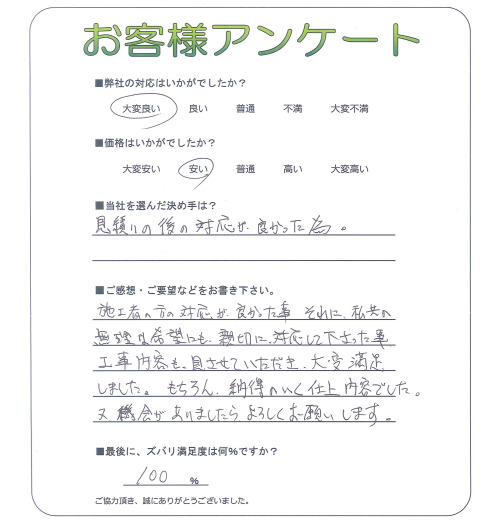 お客様アンケート
■弊社の対応はいかがでしたか？
大変良い 良い 普通 不満 大変不満
■価格はいかがでしたか？
大変安い 安い 普通 高い 大変高い
■当社を選んだ決め手は？
見積りの後の対応が良かった為。
■ご感想・ご要望などをお書き下さい。
施工者の方の対応が良かった事 それに、私共の
無理な希望にも、親切に対応して下さった事
工事内容も、見させていただき、大変満足
しました。もちろん、納得のいく仕上内容でした。
又機会がありましたらよろしくお願いします。
■最後に、ズバリ満足度は何％ですか？
100 ％
ご協力頂き、誠にありがとうございました。